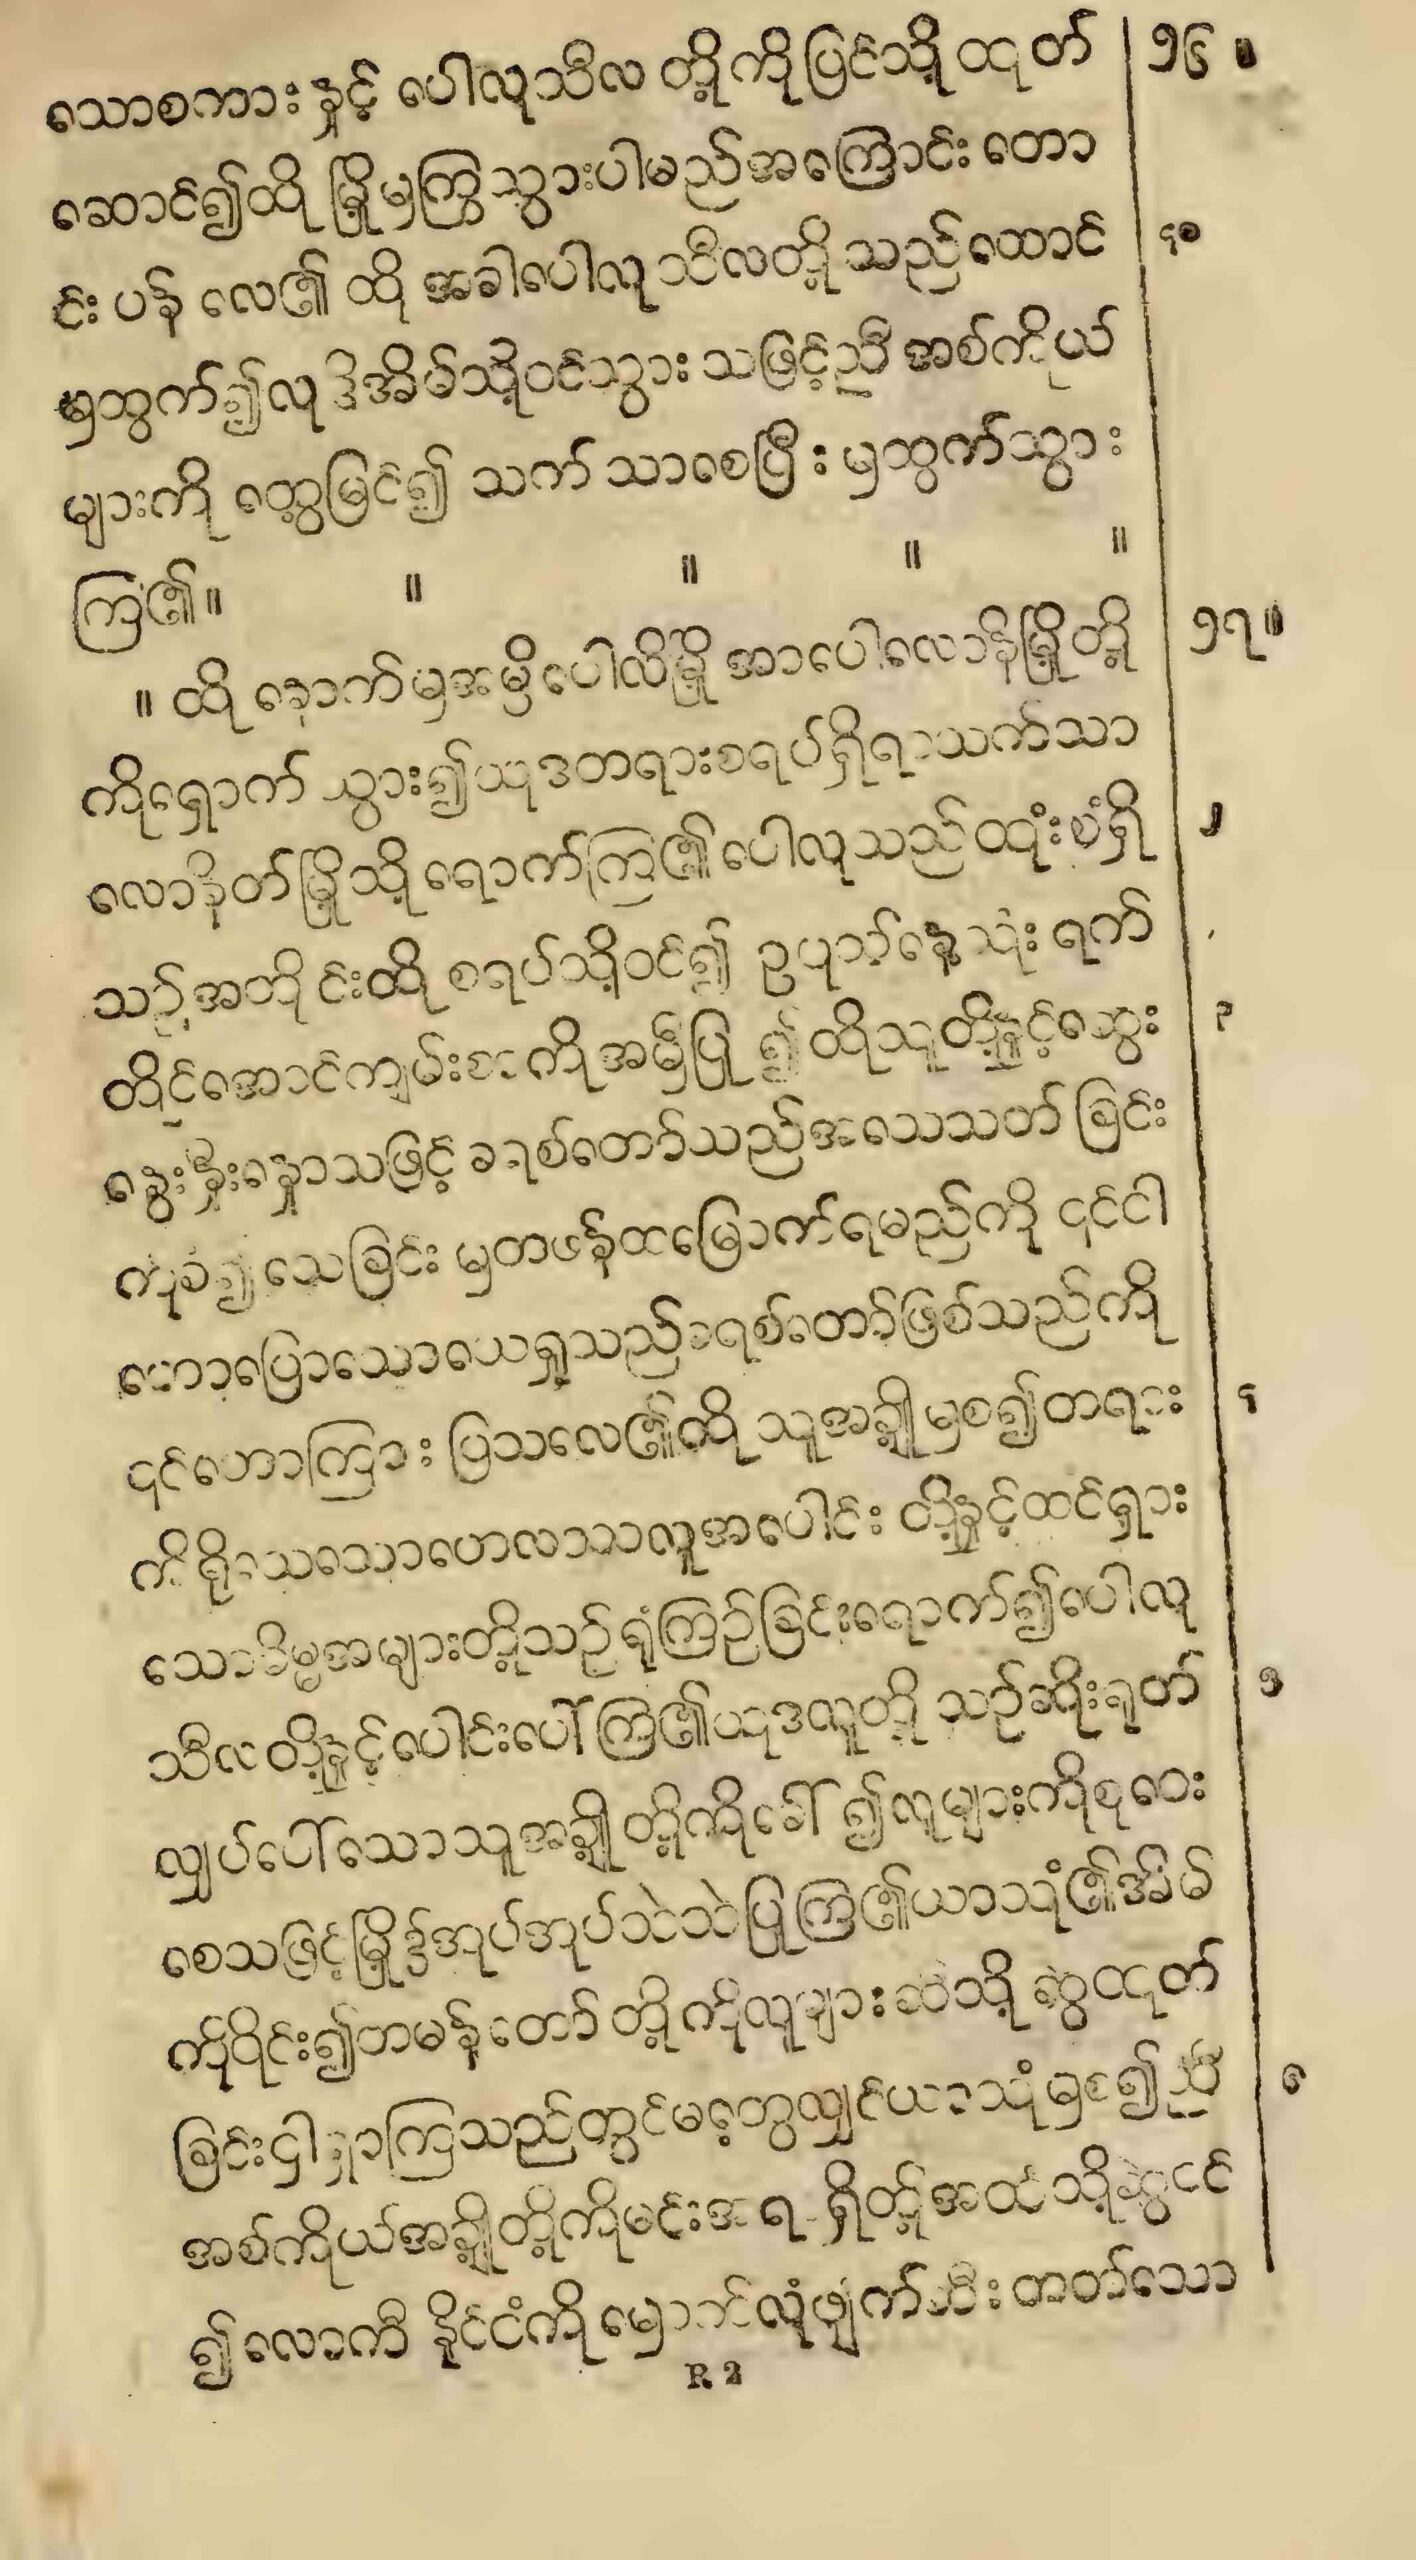 သောစကားနှင့် ပေါလုသီလ တို့ကိုပြင်သို့ ထုတ် ၁၆ ။
ဆောင်၍ထို မြို့မှကြွသွားပါမည်အကြောင်း တော
င်း ပန် လေ၏ ထို အခါပေါလု သီလတို့ သည်ထောင် ၄၀
မှထွက်၍လု ဒိအိမ်သို့ဝင်သွား သဖြင့်ညီ အစ်ကိုယ်
များကို တွေ့မြင်၍ သက် သာစေပြီး မှထွက်သွား
ကြ၏။ ။ ။ ။ ။
။ ထို နောက်မှအမ္ဖိပေါလိမြို့ အာပေါလောနိမြို့တို့ ၁၇။
ကိုရှောက် သွား၍ယုဒတရားစရပ်ရှိရာသက်သာ
လောနိတ်မြို့သို့ ရောက်ကြ၏ပေါလုသည်ထုံးစံရှိ ၂
သည့်အတိုင်းထို စရပ်သို့ဝင်၍ ဥပုသ်နေ့ သုံး ရက်
တိုင်အောင်ကျမ်းစာ ကိုအမှီပြု ၍ ထိုသူတို့နှင့်ဆွေး ၃
နွေးနှီးနှောသဖြင့် ခရစ်တော်သည်အသေသတ် ခြင်း
ကိုခံ၍ သေခြင်း မှတဖန်ထမြောက်ရမည်ကို ၎င်ငါ
ဟောပြောသောယေရှုသည်ခရစ်တော်ဖြစ်သည်ကို
၎င်ဟောကြား ပြသလေ၏ထို သူအချို့မှစ၍တရား ၄
ကိုရိုသေသောဟေလာသလူအပေါင်း တို့နှင့်ထင်ရှား
သောမိမ္မအများတို့သည် ရုံကြည်ခြင်းရောက်၍ပေါလု
သီလ တို့နှင့်ပေါင်းပေါ်ကြ၏ယုဒလူတို့ သည်ဆိုးရုတ် ၅
လျှပ်ပေါ်သောသူအချို့ တို့ကိုခေါ် ၍လူများကိုစုဝေး
စေသဖြင့်မြို့၌အုပ်အုပ်သဲသဲပြုကြ၏ယာသုံ၏အိမ်
ကိုဝိုင်း၍တမန်တော် တို့ကိုလူများ ထဲသို့ ဆွဲထုတ်
ခြင်းငှါရှာကြသည်တွင်မတွေ့လျှင်ယာသုံမှစ၍ညီ ၆
အစ်ကိုယ်အချို့တို့ကိုမင်းအရာရှိတို့အထံသို့ဆွဲငင်
၍လောကီ နိုင်ငံကိုမှောက်လှုံဖျက်ဆီးတတ်သော
R 2